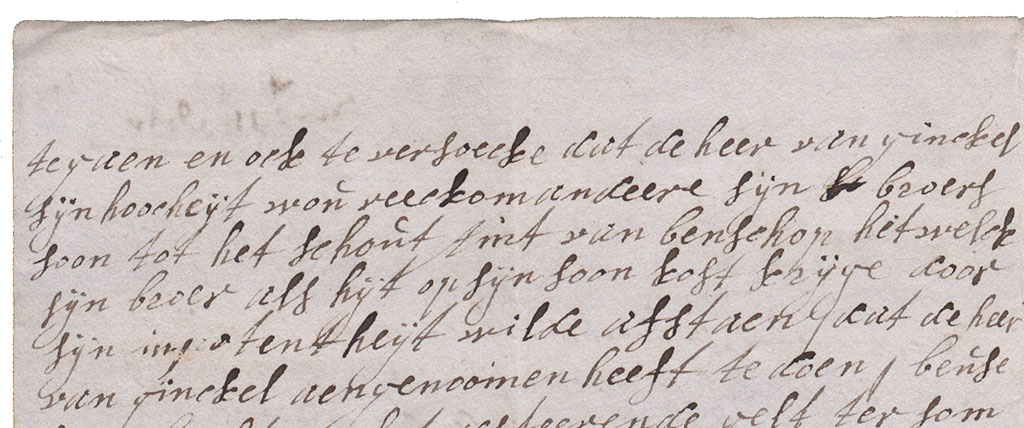 te gaen en ock te versoecke dat de heer van ginckel
sijn hoocheijt woú reeckomandeere sijn broers
soon tot het schoút imt van benschop hetwelck
sijn broer als hijt op sijn soon kost krijge door
sijn inpotentheijt wilde afstaen / dat de heer
van ginckel aengenoomen heeft te doen / beúse
resteerende gelt ter som